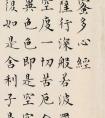 蜜多心經
行深般若波
空度一切苦厄
異色色即是空
復如是舍利子是